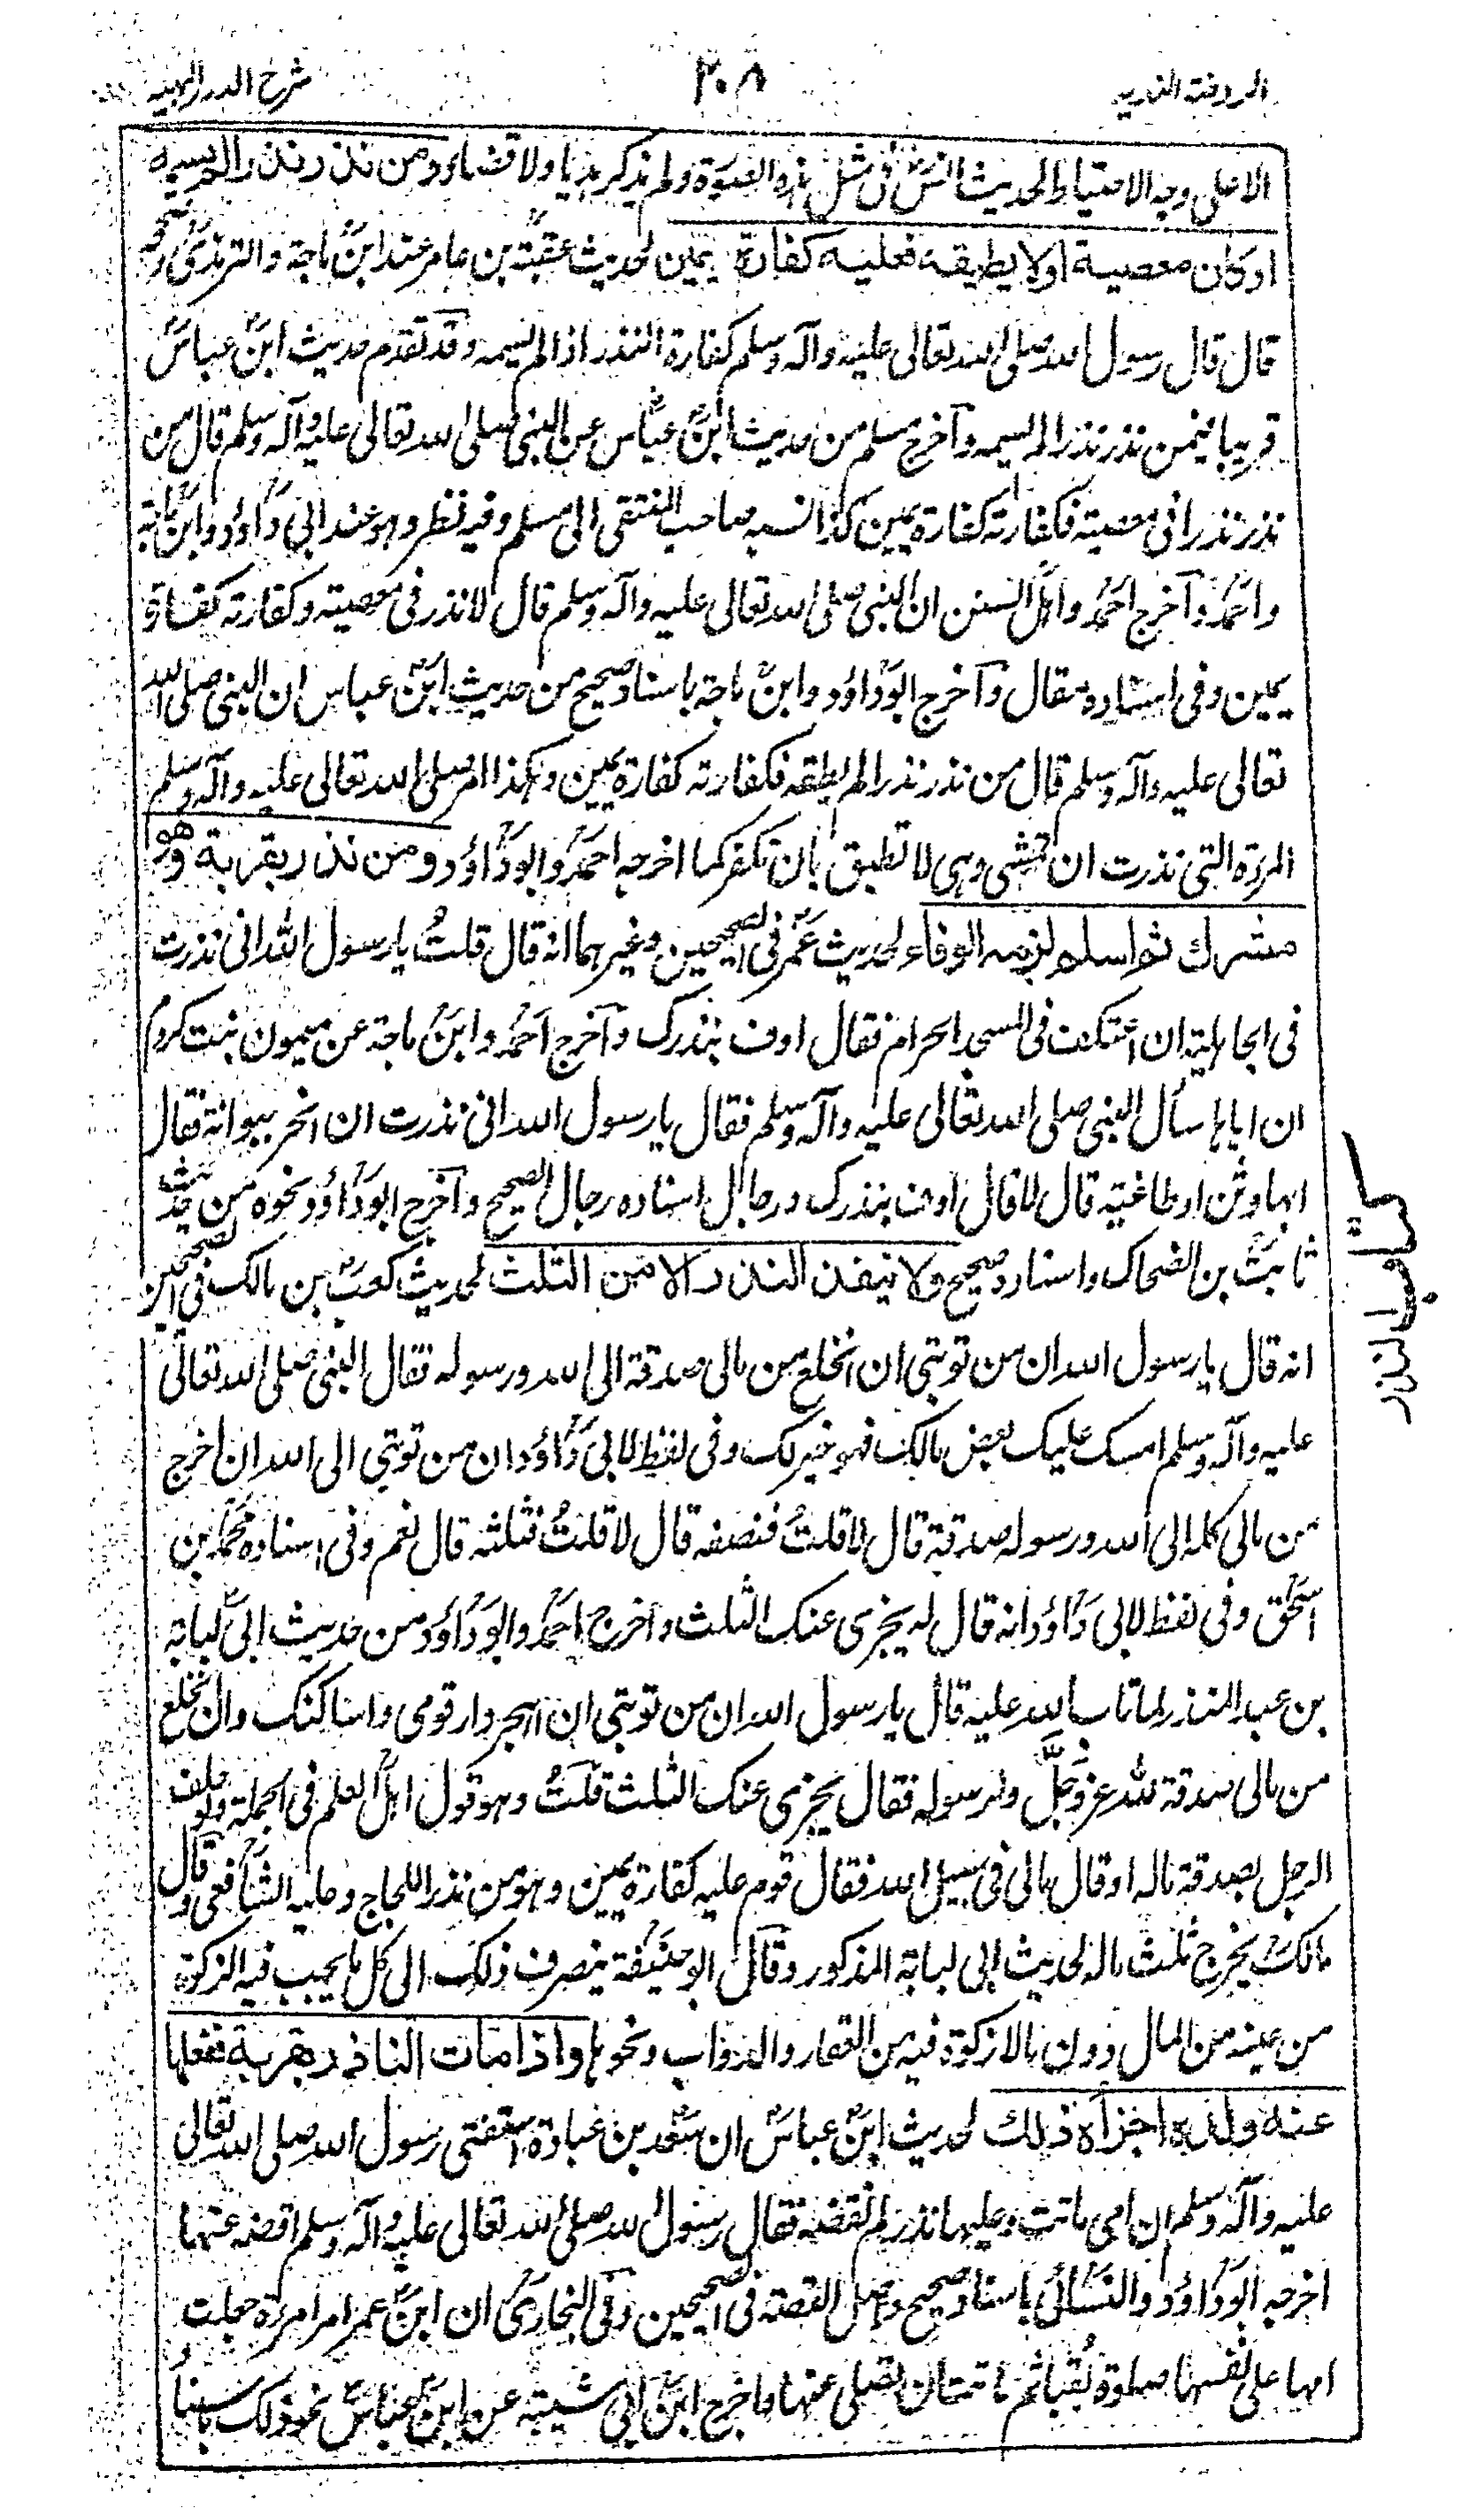 الروضة الندية
٢٠٨
شرح الدرر البهية
الا على وجه الاحتياط لحديث انس فى مثل هذه القصة ولم يذكر هديا ولا قضاء ومن نذر نذرا لم يسمه
او كان معصية اولا يطيقه فعليه كفارة يمين لحديث عقبة بن عامر عند ابن ماجة والترمذى وصححه
قال قال رسول الله صلى الله تعالى عليه وآله وسلم كفارة النذر اذا لم يسمه وقد تقدم حديث ابن عباس
قريبا فيمن نذر نذرا لم يسمه وآخرج مسلم من حديث ابن عباس عن النبى صلى الله تعالى عليه وآله وسلم قال من
نذر نذرا فى معصية فكفارته كفارة يمين كذا نسبه صاحب المنتقى الى مسلم وفيه نظر وهو عند ابى داود وابن ماجة
واحمد وآخرج احمد واهل السنن ان النبى صلى الله تعالى عليه وآله وسلم قال لا نذر فى معصية وكفارته كفارة
يمين وفى اسناده مقال وآخرج ابو داؤد وابن ماجة باسناد صحيح من حديث ابن عباس ان النبى صلى الله
تعالى عليه وآله وسلم قال من نذر نذرا لم يطقه فكفارته كفارة يمين وهكذا امر صلى الله تعالى عليه وآله وسلم
المرءة التى نذرت ان تمشى وهى لا تطيق بان تكفر كما اخرجه احمد وابو داؤد ومن نذر بقربة وهو
مشرك ثم اسلم لزمه الوفاء لحديث عمر فى الصحيحين وغيرهما انه قال قلت يا رسول الله انى نذرت
فى الجاهلية ان اعتكف فى المسجد الحرام فقال اوف بنذرك وآخرج احمد وابن ماجة عن ميمون بنت كردم
ان اباها سأل النبى صلى الله تعالى عليه وآله وسلم فقال يا رسول الله انى نذرت ان انحر ببوانة فقال
ابها وثن او طاغية قال لا قال اوف بنذرك ورجال اسناده رجال الصحيح وآخرج ابو داؤد نحوه من حديث
ثابت بن الضحاك واسناده صحيح ولا ينفذ النذر الا من الثلث لحديث كعب بن مالك فى الصحيحين
انه قال يا رسول الله ان من توبتى ان انخلع من مالى صدقة الى الله ورسوله فقال النبى صلى الله تعالى
عليه وآله وسلم امسك عليك بعض مالك فهو خير لك وفى لفظ لابى داؤد ان من توبتى الى الله ان اخرج
من مالى كله الى الله ورسوله صدقة قال لا قلت فنصفه قال لا قلت فثلثه قال نعم وفى اسناده محمد بن
اسحق وفى لفظ لابى داؤد انه قال له يجزى عنك الثلث واخرج احمد وابو داؤد من حديث ابى لبابة
بن عبد المنذر لما تاب الله عليه قال يا رسول الله ان من توبتى ان اهجر دار قومى واساكنك وان انخلع
من مالى صدقة لله عز وجل ولرسوله فقال يجزى عنك الثلث قلت وهو قول اهل العلم فى الجملة ولو حلف
الرجل بصدقة ماله او قال مالى فى سبيل الله فقال قوم عليه كفارة يمين وهو من نذر اللجاج وعليه الشافعى وقال
مالك يخرج ثلث ماله لحديث ابى لبابة المذكور وقال ابو حنيفة ينصرف ذلك الى كل ما يجب فيه الزكوة
من عينه من المال دون ما لا زكوة فيه من العقار والدواب ونحوها واذا مات الناذر بقربة ففعلها
عنه ولده اجزأه ذلك لحديث ابن عباس ان سعد بن عبادة استفتى رسول الله صلى الله تعالى
عليه وآله وسلم ان امى ماتت وعليها نذر لم تقضه فقال رسول الله صلى الله تعالى عليه وآله وسلم اقضه عنها
اخرجه ابو داؤد والنسائى باسناد صحيح واصل القصة فى الصحيحين وفى البخارى ان ابن عمر امر امرءة جعلت
امها على نفسها صلوة بقباء ثم ماتت ان تصلى عنها واخرج ابن ابى شيبة عن ابن عباس نحو ذلك باسناد
كتاب النذر